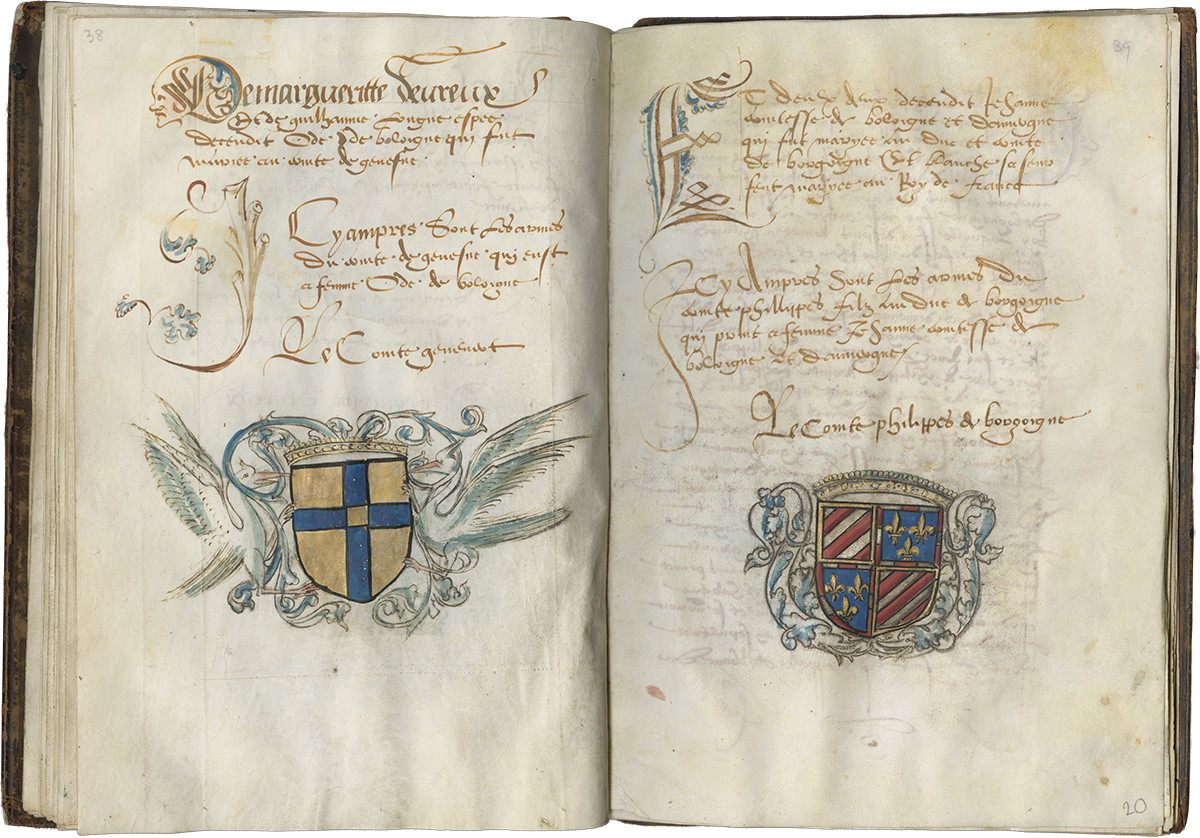 38
De margueritte deureux
Et de guilhaume longue espee
decendit Ode de boloigne qui fut
mariee au conte de genefue
Cy ampres Sont les armes
du conte de genefue qui eust
a femme Ode de boloigne
Le Comte genevot
39
ET deulx deux decendit Jehanne
comtesse de boloigne et dauuogne
qui fut maryee au duc et comte
de borgoigne Et blanche sa seur
feut maryee au Roy de france
Cy Ampres Sont les armes du
comte phillippes filz au duc de borgoigne
qui print a femme Jehanne comtesse de
boloigne et dauuogne
Le Comte philippes de borgoigne
20